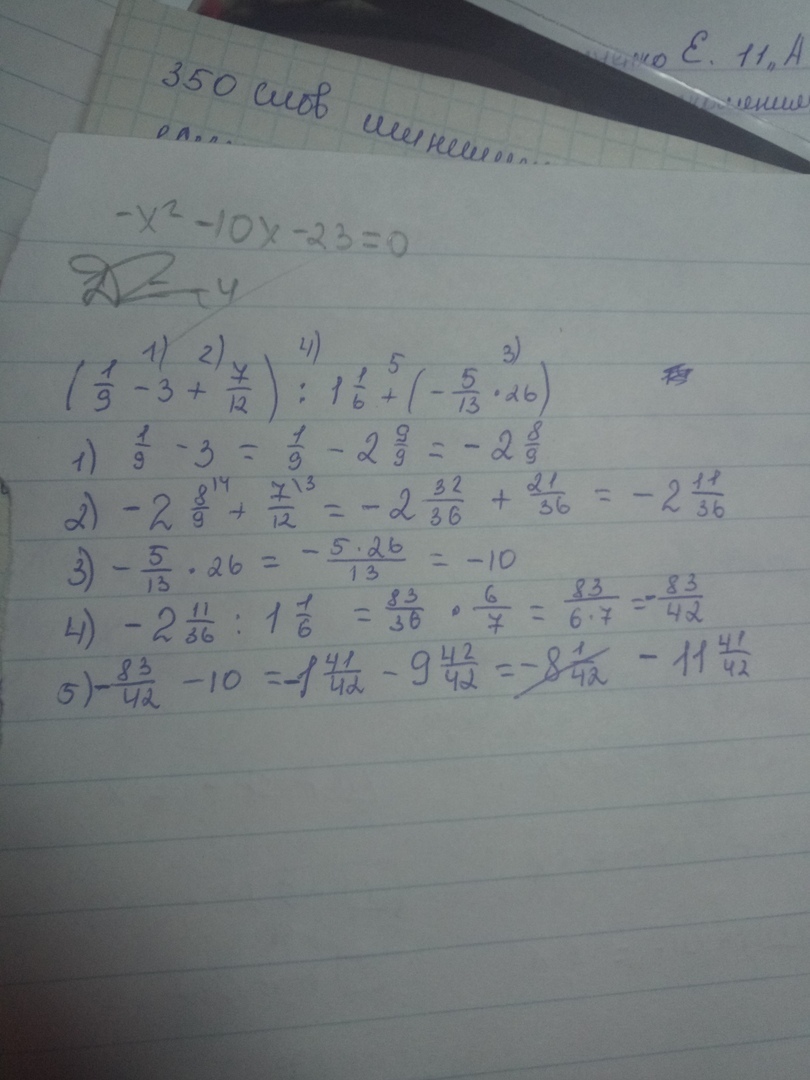 Е. 11„А
350 слов
-x² -10x -23 = 0
1) 2) 4) 5 3)
(1/9 - 3 + 7/12) : 1 1/6 + (- 5/13 · 26)
1) 1/9 - 3 = 1/9 - 2 9/9 = - 2 8/9
2) - 2 8/9 \4 + 7/12 \3 = - 2 32/36 + 21/36 = - 2 11/36
3) - 5/13 · 26 = - 5·26/13 = -10
4) - 2 11/36 : 1 1/6 = 83/36 · 6/7 = 83/6·7 = - 83/42
5) - 83/42 - 10 = -1 41/42 - 9 42/42 = -8 1/42 - 11 41/42